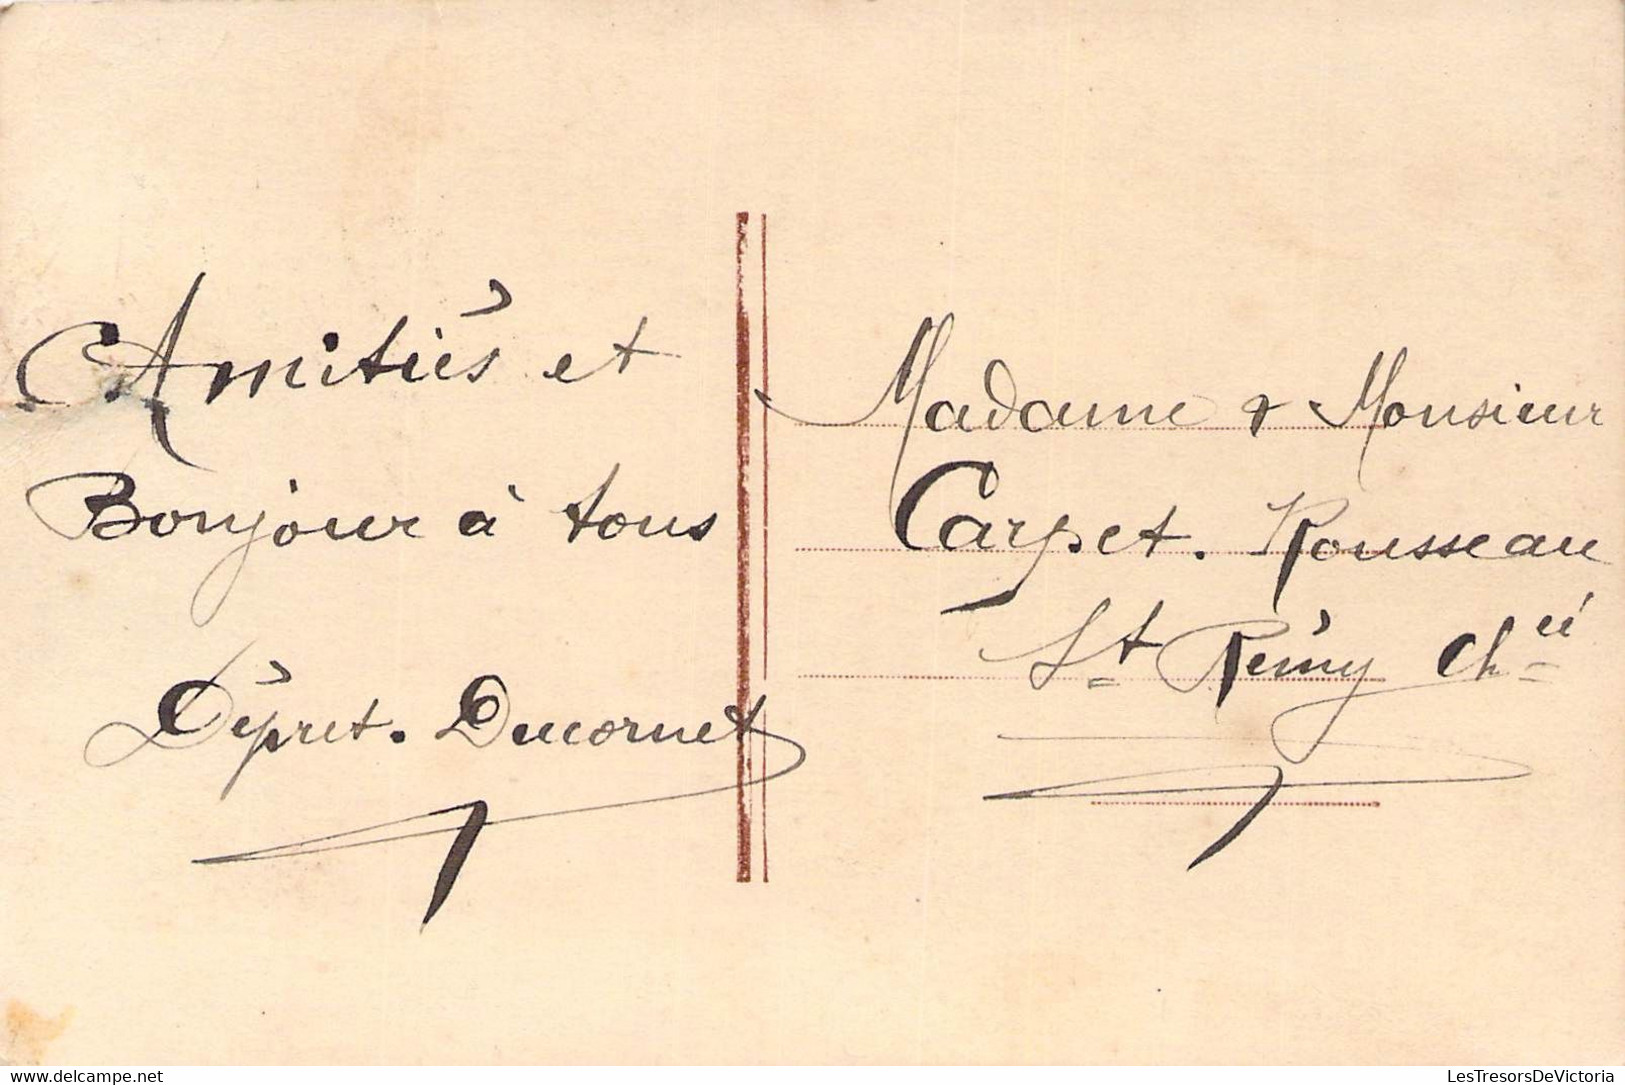 Amitiés et
Bonjour à tous
Dépret. Ducornet
Madame & Monsieur
Carpet. Rousseau
St Rémy Chéé
delcampe.net
LesTresorsDeVictoria